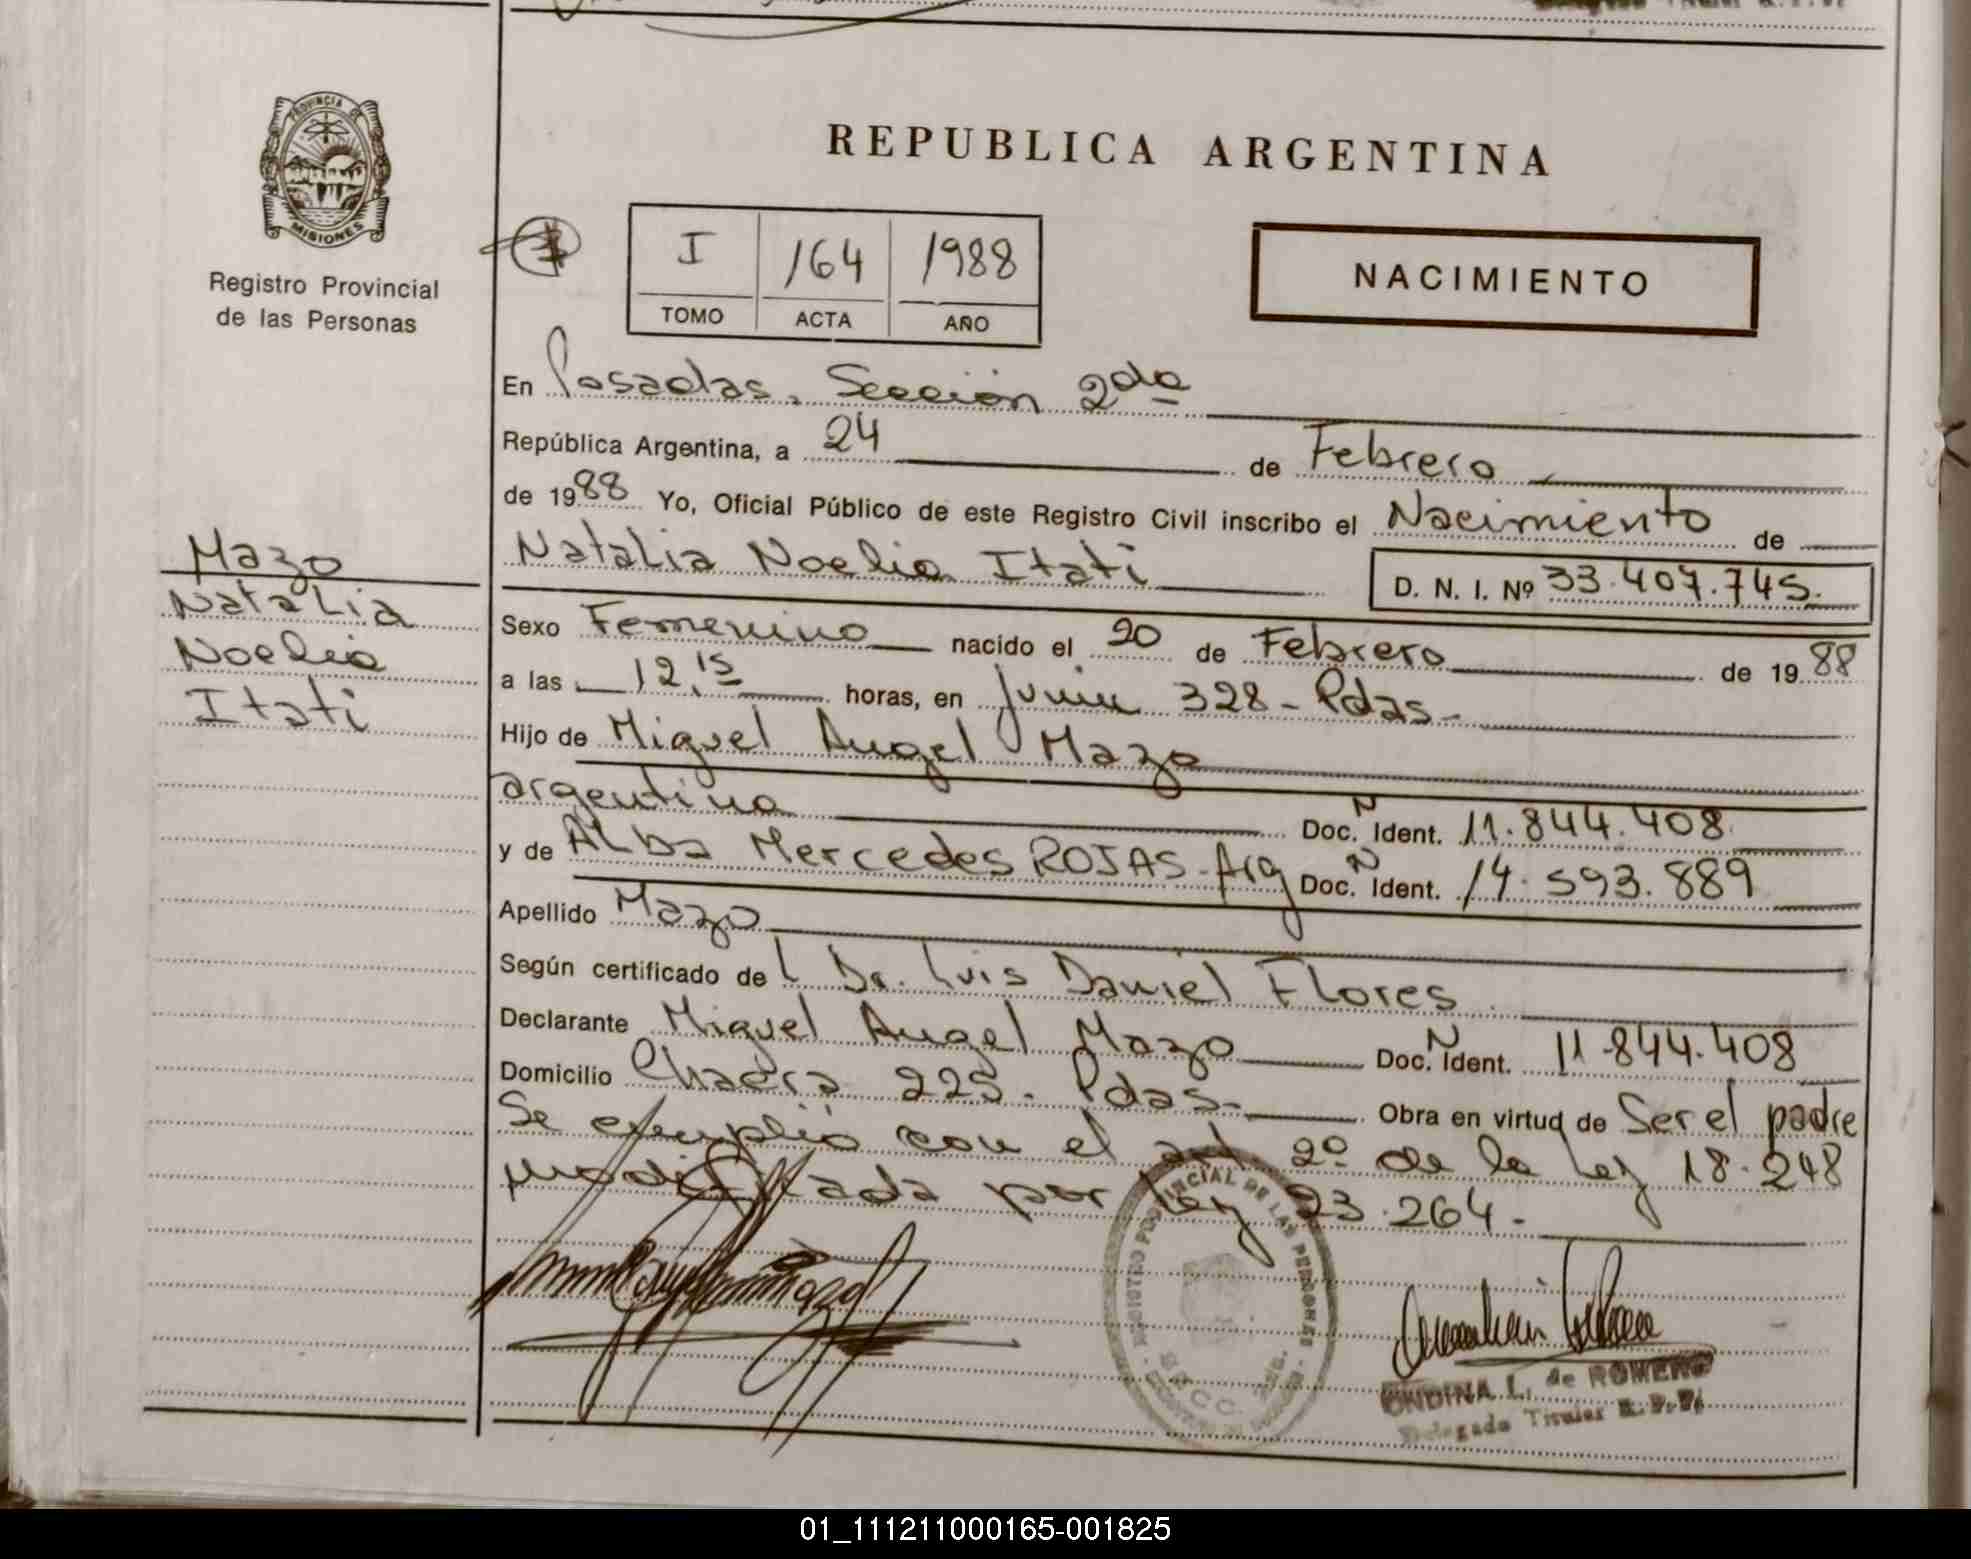 PROVINCIA DE
MISIONES
Registro Provincial
de las Personas
REPUBLICA ARGENTINA
I 164 1988
TOMO ACTA AÑO
NACIMIENTO
En Posadas, Sección 2da
República Argentina, a 24 de Febrero
de 1988 Yo, Oficial Público de este Registro Civil inscribo el Nacimiento de
Natalia Noelia Itatí D. N. I. Nº 33.407.745.
Mazo
Natalia
Noelia
Itatí
Sexo Femenino nacido el 20 de Febrero de 1988
a las 12,15 horas, en Junín 328 - Pdas -
Hijo de Miguel Angel Mazo
argentina Doc. N Ident. 11.844.408
y de Alba Mercedes ROJAS - Arg Doc. N Ident. 14.593.889
Apellido Mazo
Según certificado de l Dr. Luis Daniel Flores
Declarante Miguel Angel Mazo Doc. N Ident. 11.844.408
Domicilio Chacra 225. Pdas. Obra en virtud de Ser el padre
Se cumplió con el art 2º de la Ley 18.248
modificada por Ley 23.264.-
REGISTRO PROVINCIAL DE LAS PERSONAS
SECC. 2da.
ONDINA L. de ROMERO
Delegada Titular R.P.P.
01_111211000165-001825